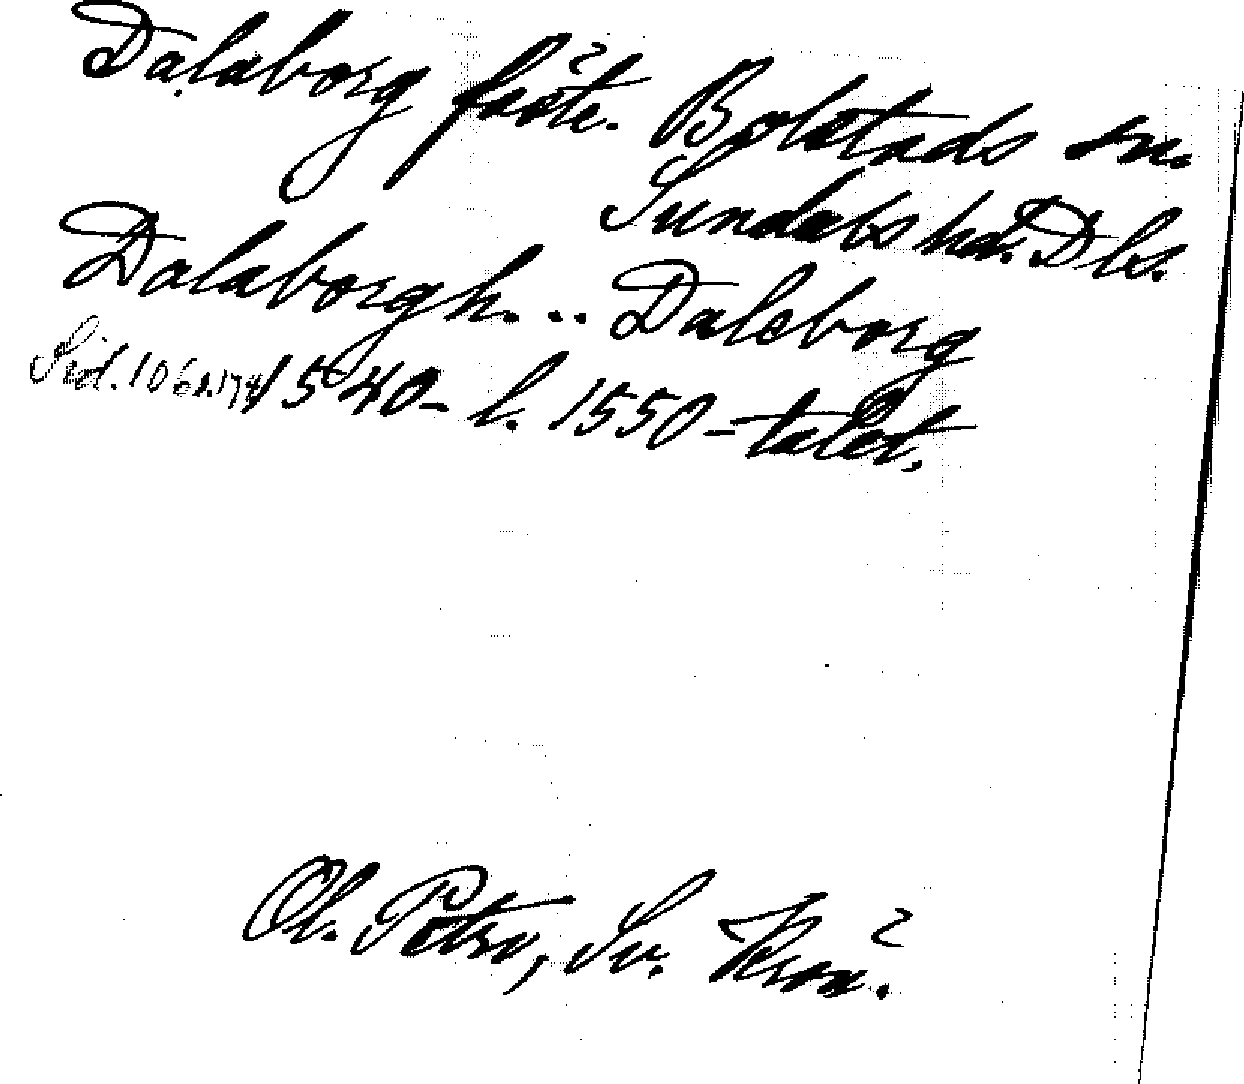 Dalaborg fäste. Bolstads sn.
Sundals hd. Dls.
Dalaborgh. .. Daleborg
Sid. 106 o. 174 1540- l. 1550-talet.
Ol. Petri, Sv. Krön.